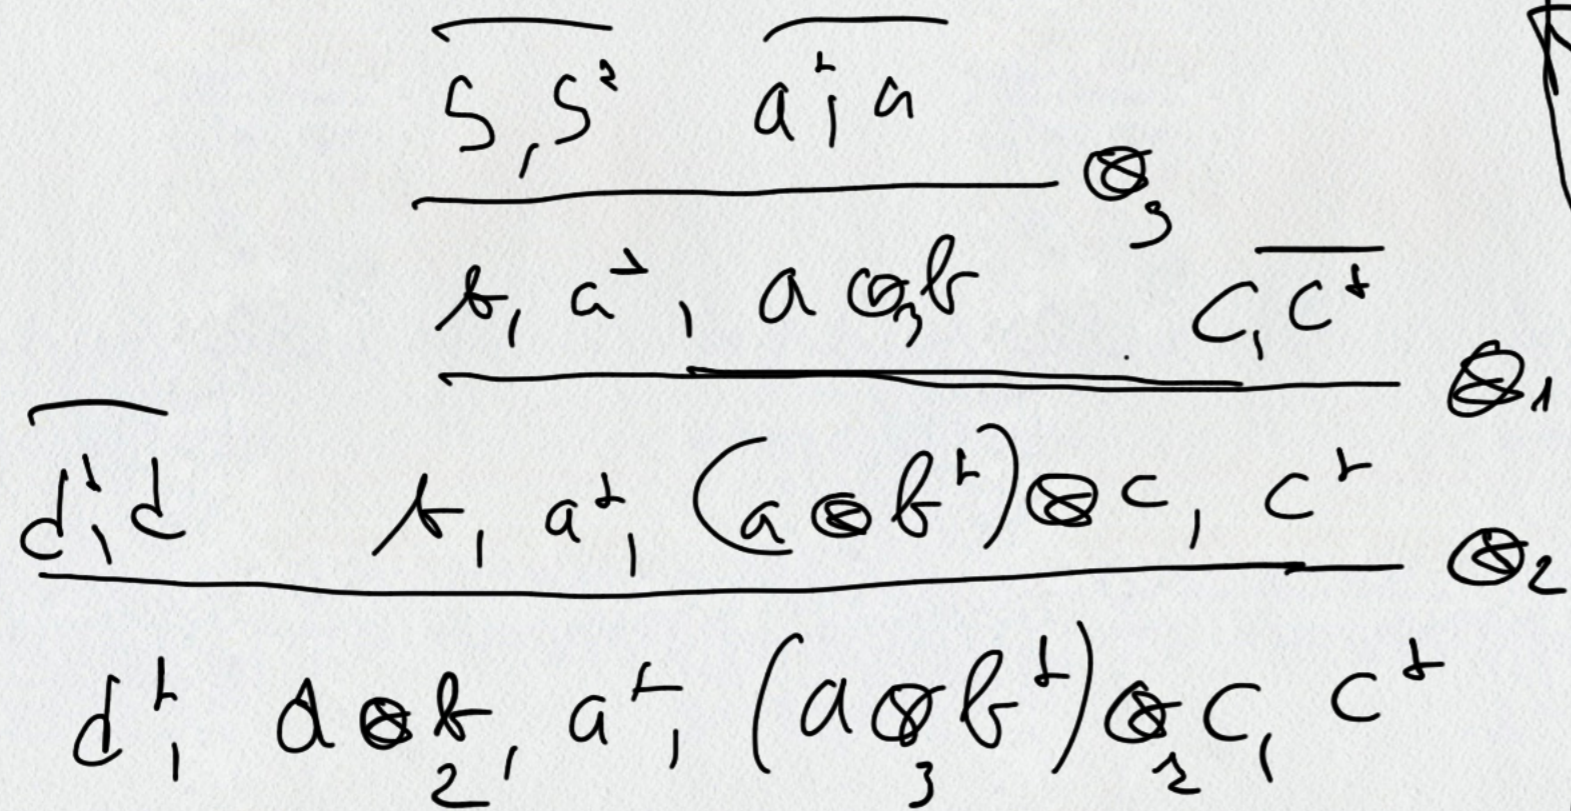 b, b^⊥ a^⊥, a
⊗3
b, a^⊥, a ⊗3 b c, c^⊥
⊗1
d^⊥, d b, a^⊥, (a ⊗ b^⊥) ⊗ c, c^⊥
⊗2
d^⊥, d ⊗2 b, a^⊥, (a ⊗3 b^⊥) ⊗1 c, c^⊥